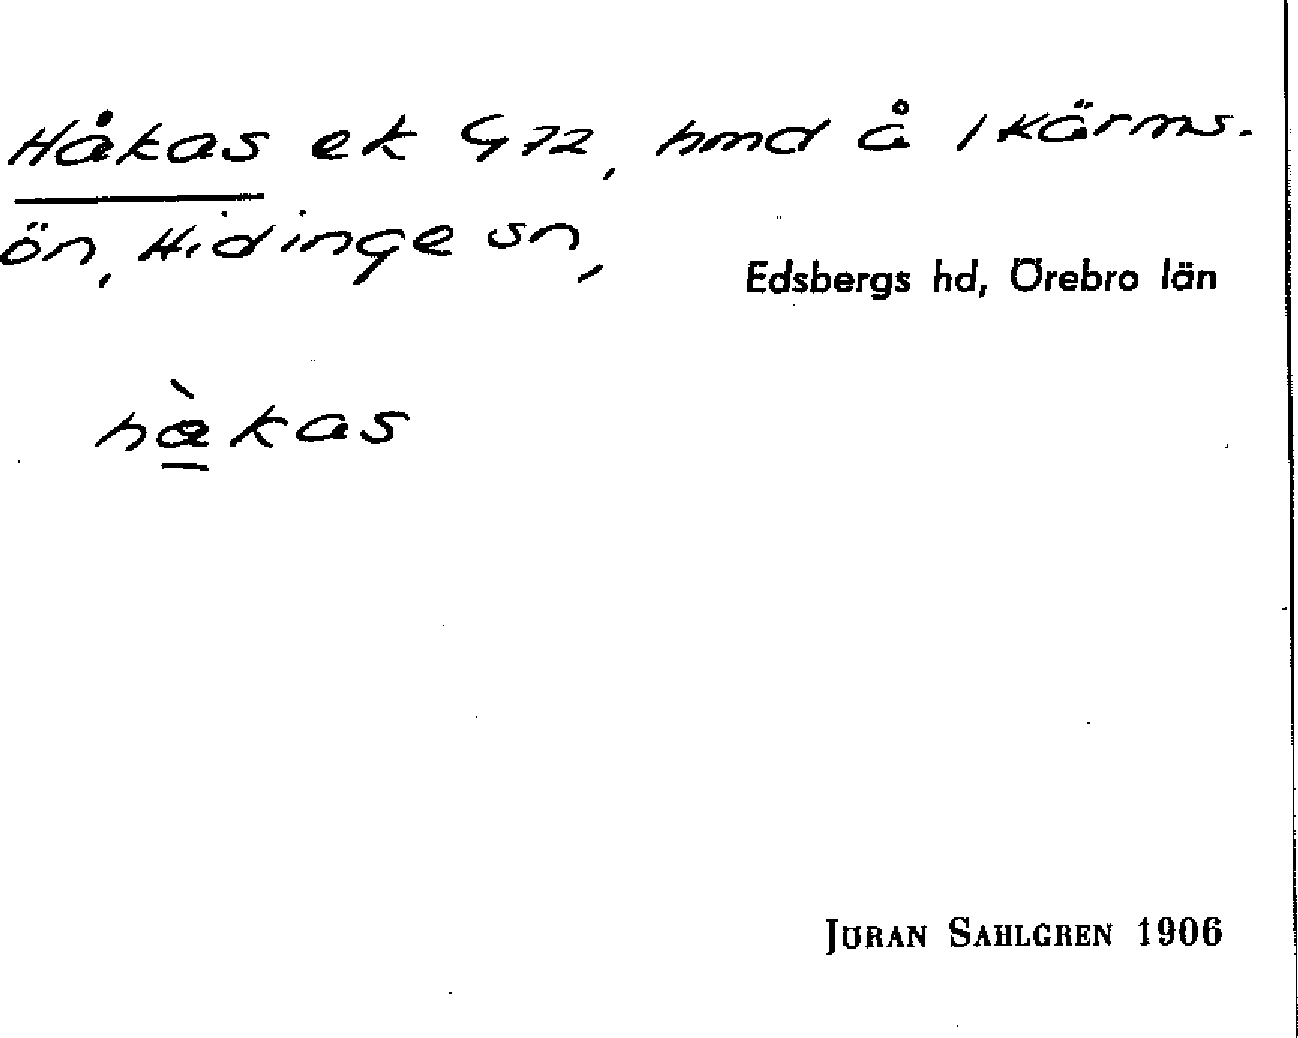 Håkas ek G72, hmd å 1 Kärms-
ön, Hidinge sn,
Edsbergs hd, Örebro län
hàkas
JÖRAN SAHLGREN 1906